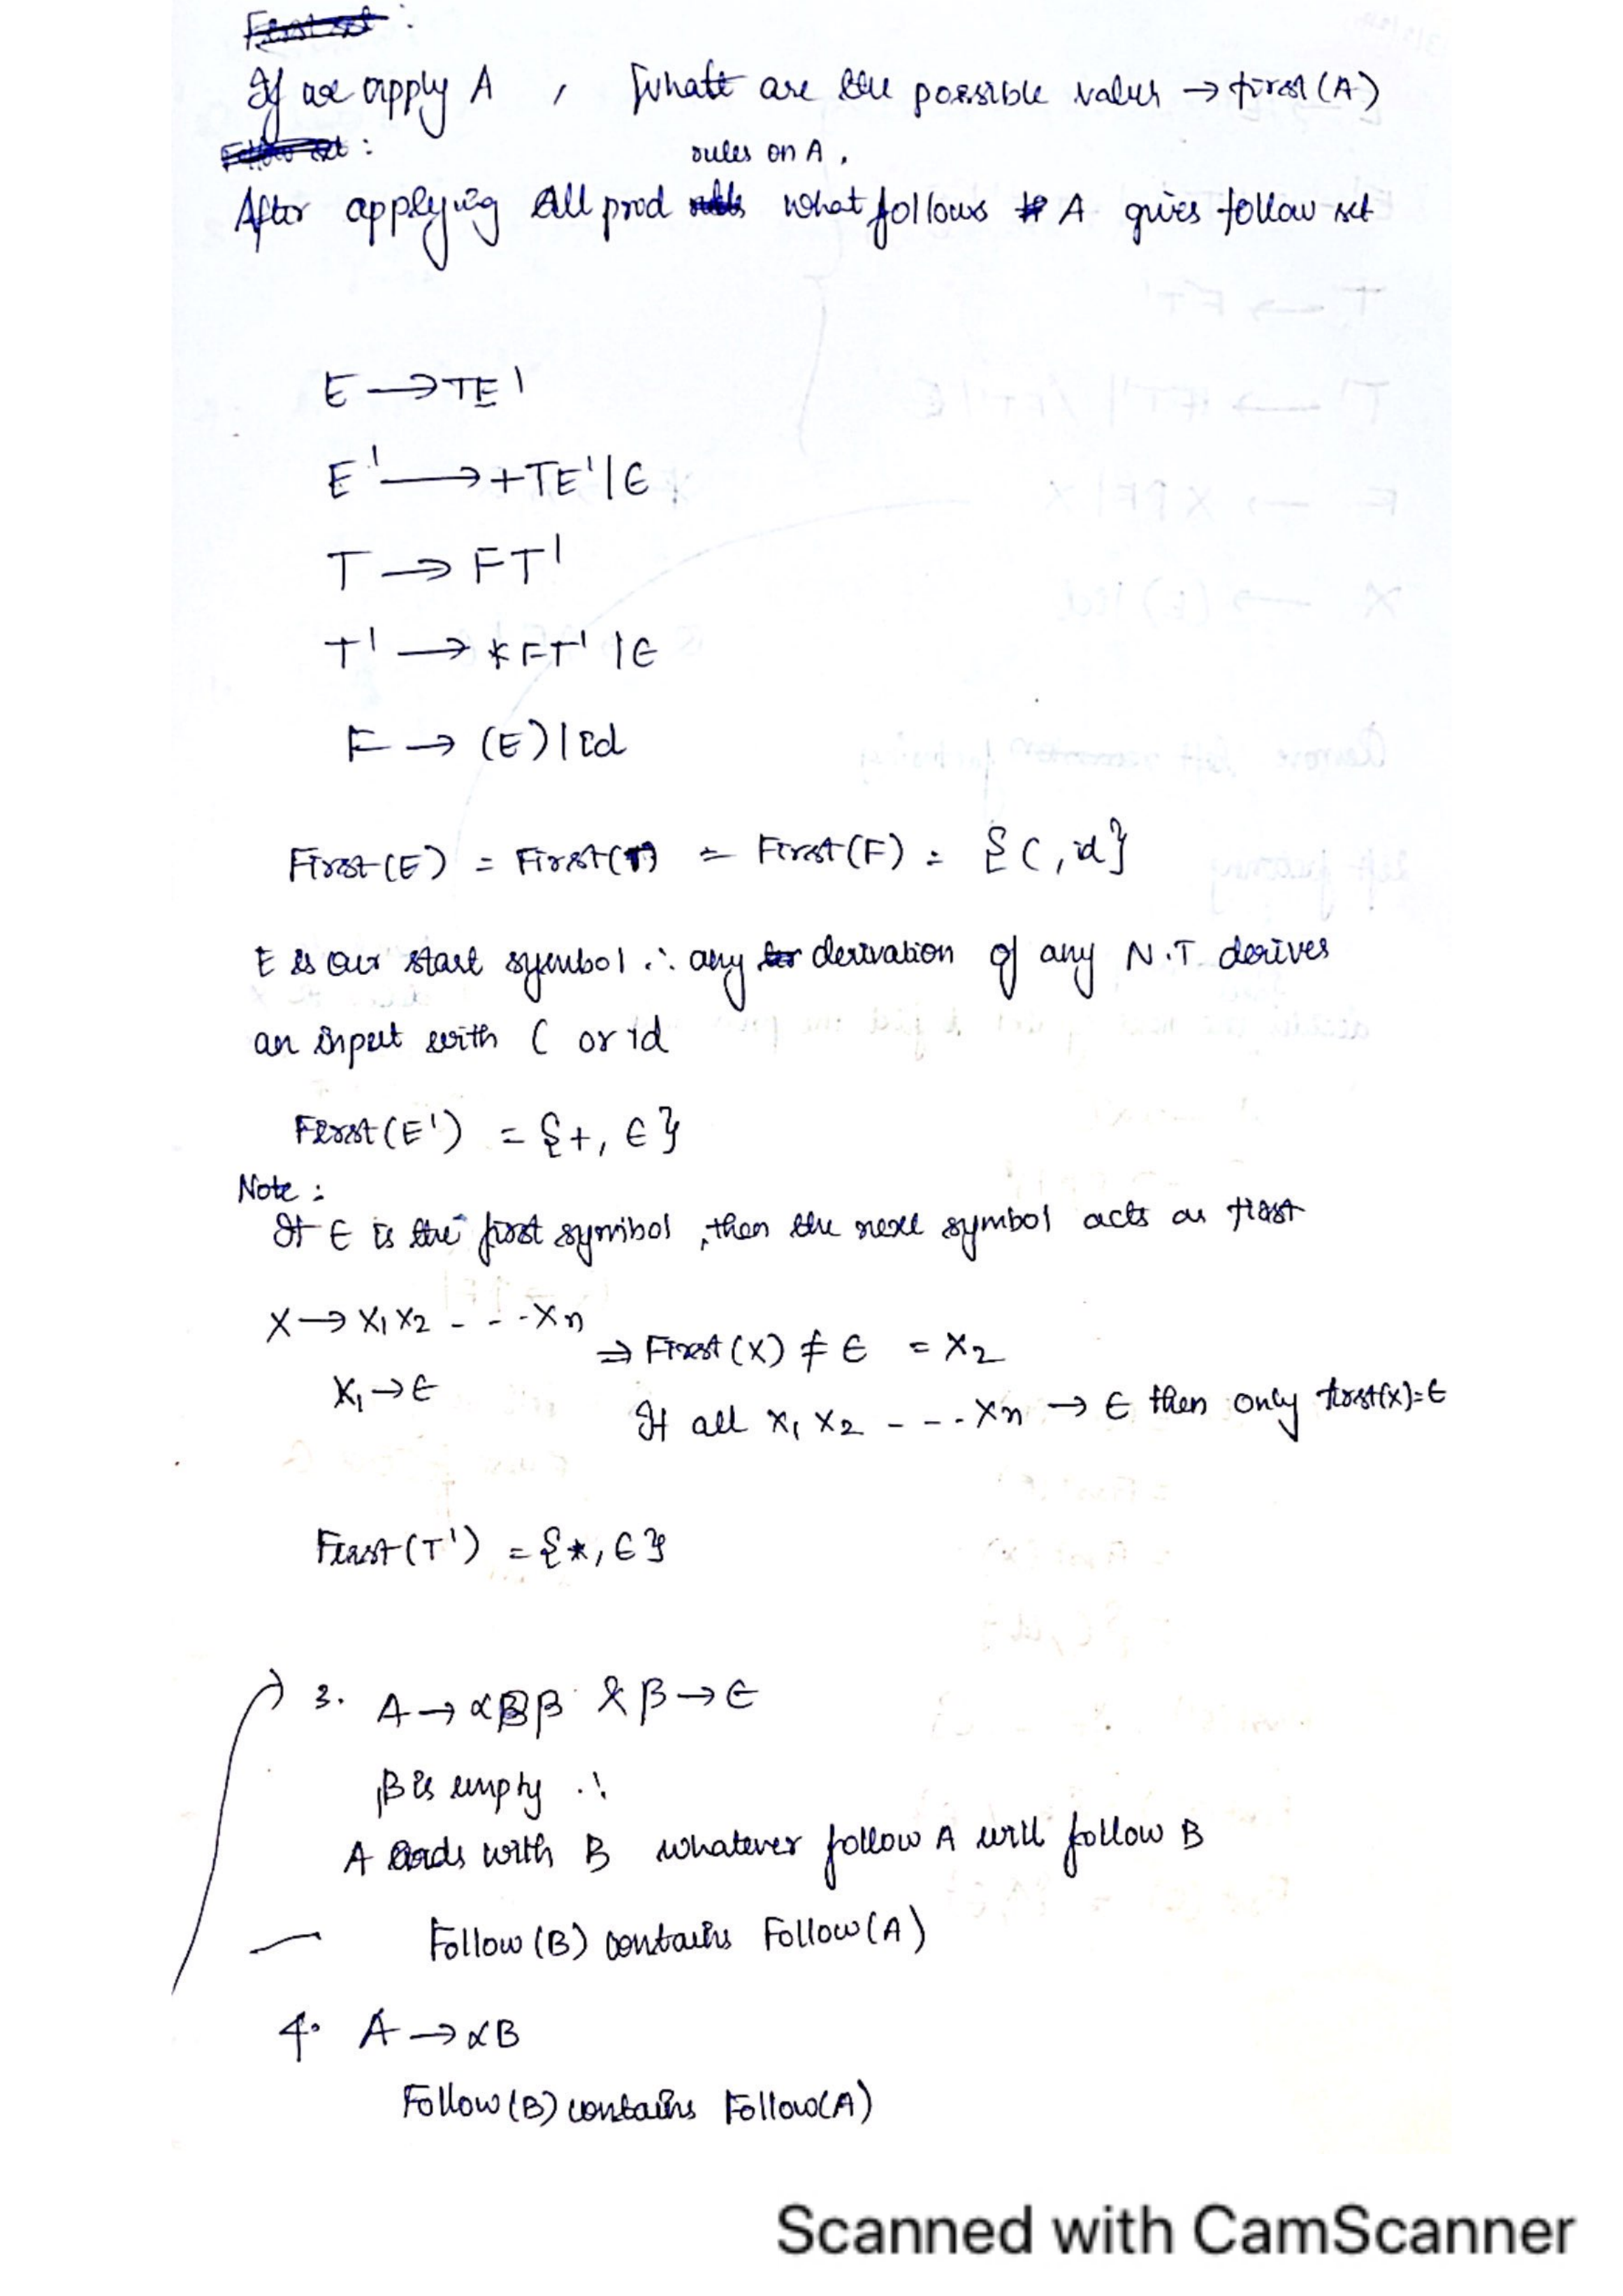 First set :
If we apply A , What are the possible values → first(A)
Follow set :
rules on A .
After applying All prod what follows A gives follow set
E → TE'
E' → +TE'|ϵ
T → FT'
T' → *FT' |ϵ
F → (E)|id
First(E) = First(T) = First(F) = {(, id}
E is our start symbol ∴ any derivation of any N.T derives
an input with ( or id
First(E') = {+, ϵ}
Note :
If ϵ is the first symbol, then the next symbol acts as first
X → X₁ X₂ - - - Xn
⇒ First(X) ≠ ϵ = X₂
X₁ → ϵ
If all X₁ X₂ - - - Xn → ϵ then only first(x)=ϵ
First(T') = {*, ϵ}
3. A → αBβ & β → ϵ
β is empty ∴
A ends with B whatever follow A will follow B
Follow(B) contains Follow(A)
4. A → αB
Follow(B) contains Follow(A)
Scanned with CamScanner